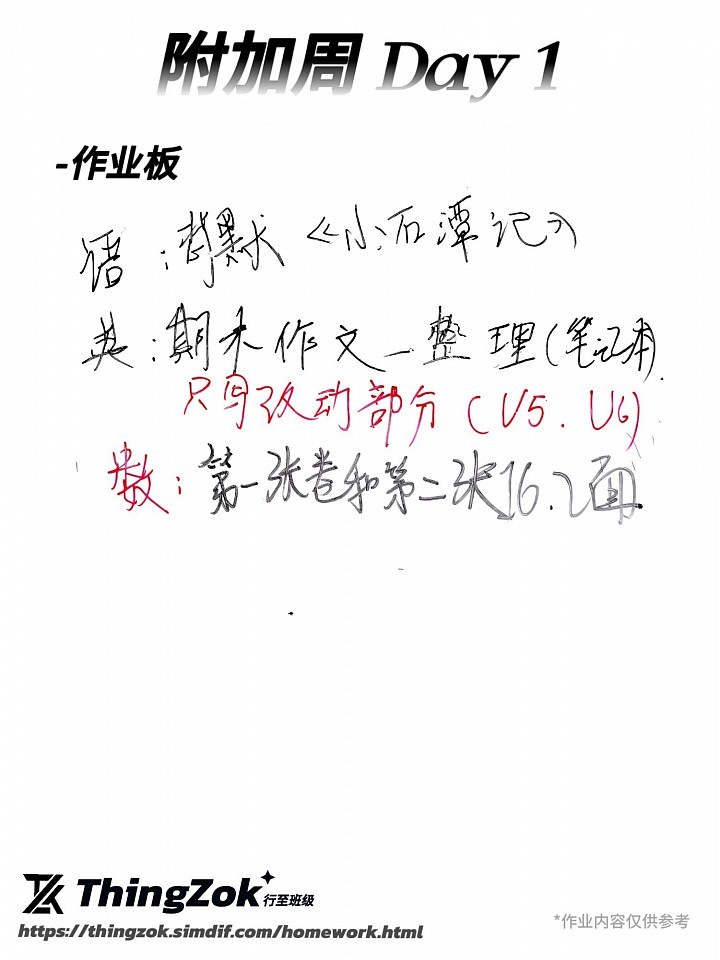 附加周 Day 1
-作业板
语：背默《小石潭记》
英：期末作文-整理(笔记本)
只写改动部分(U5.U6)
数：第一张卷和第二张16.2面
ThingZok 行至班级
https://thingzok.simdif.com/homework.html
*作业内容仅供参考